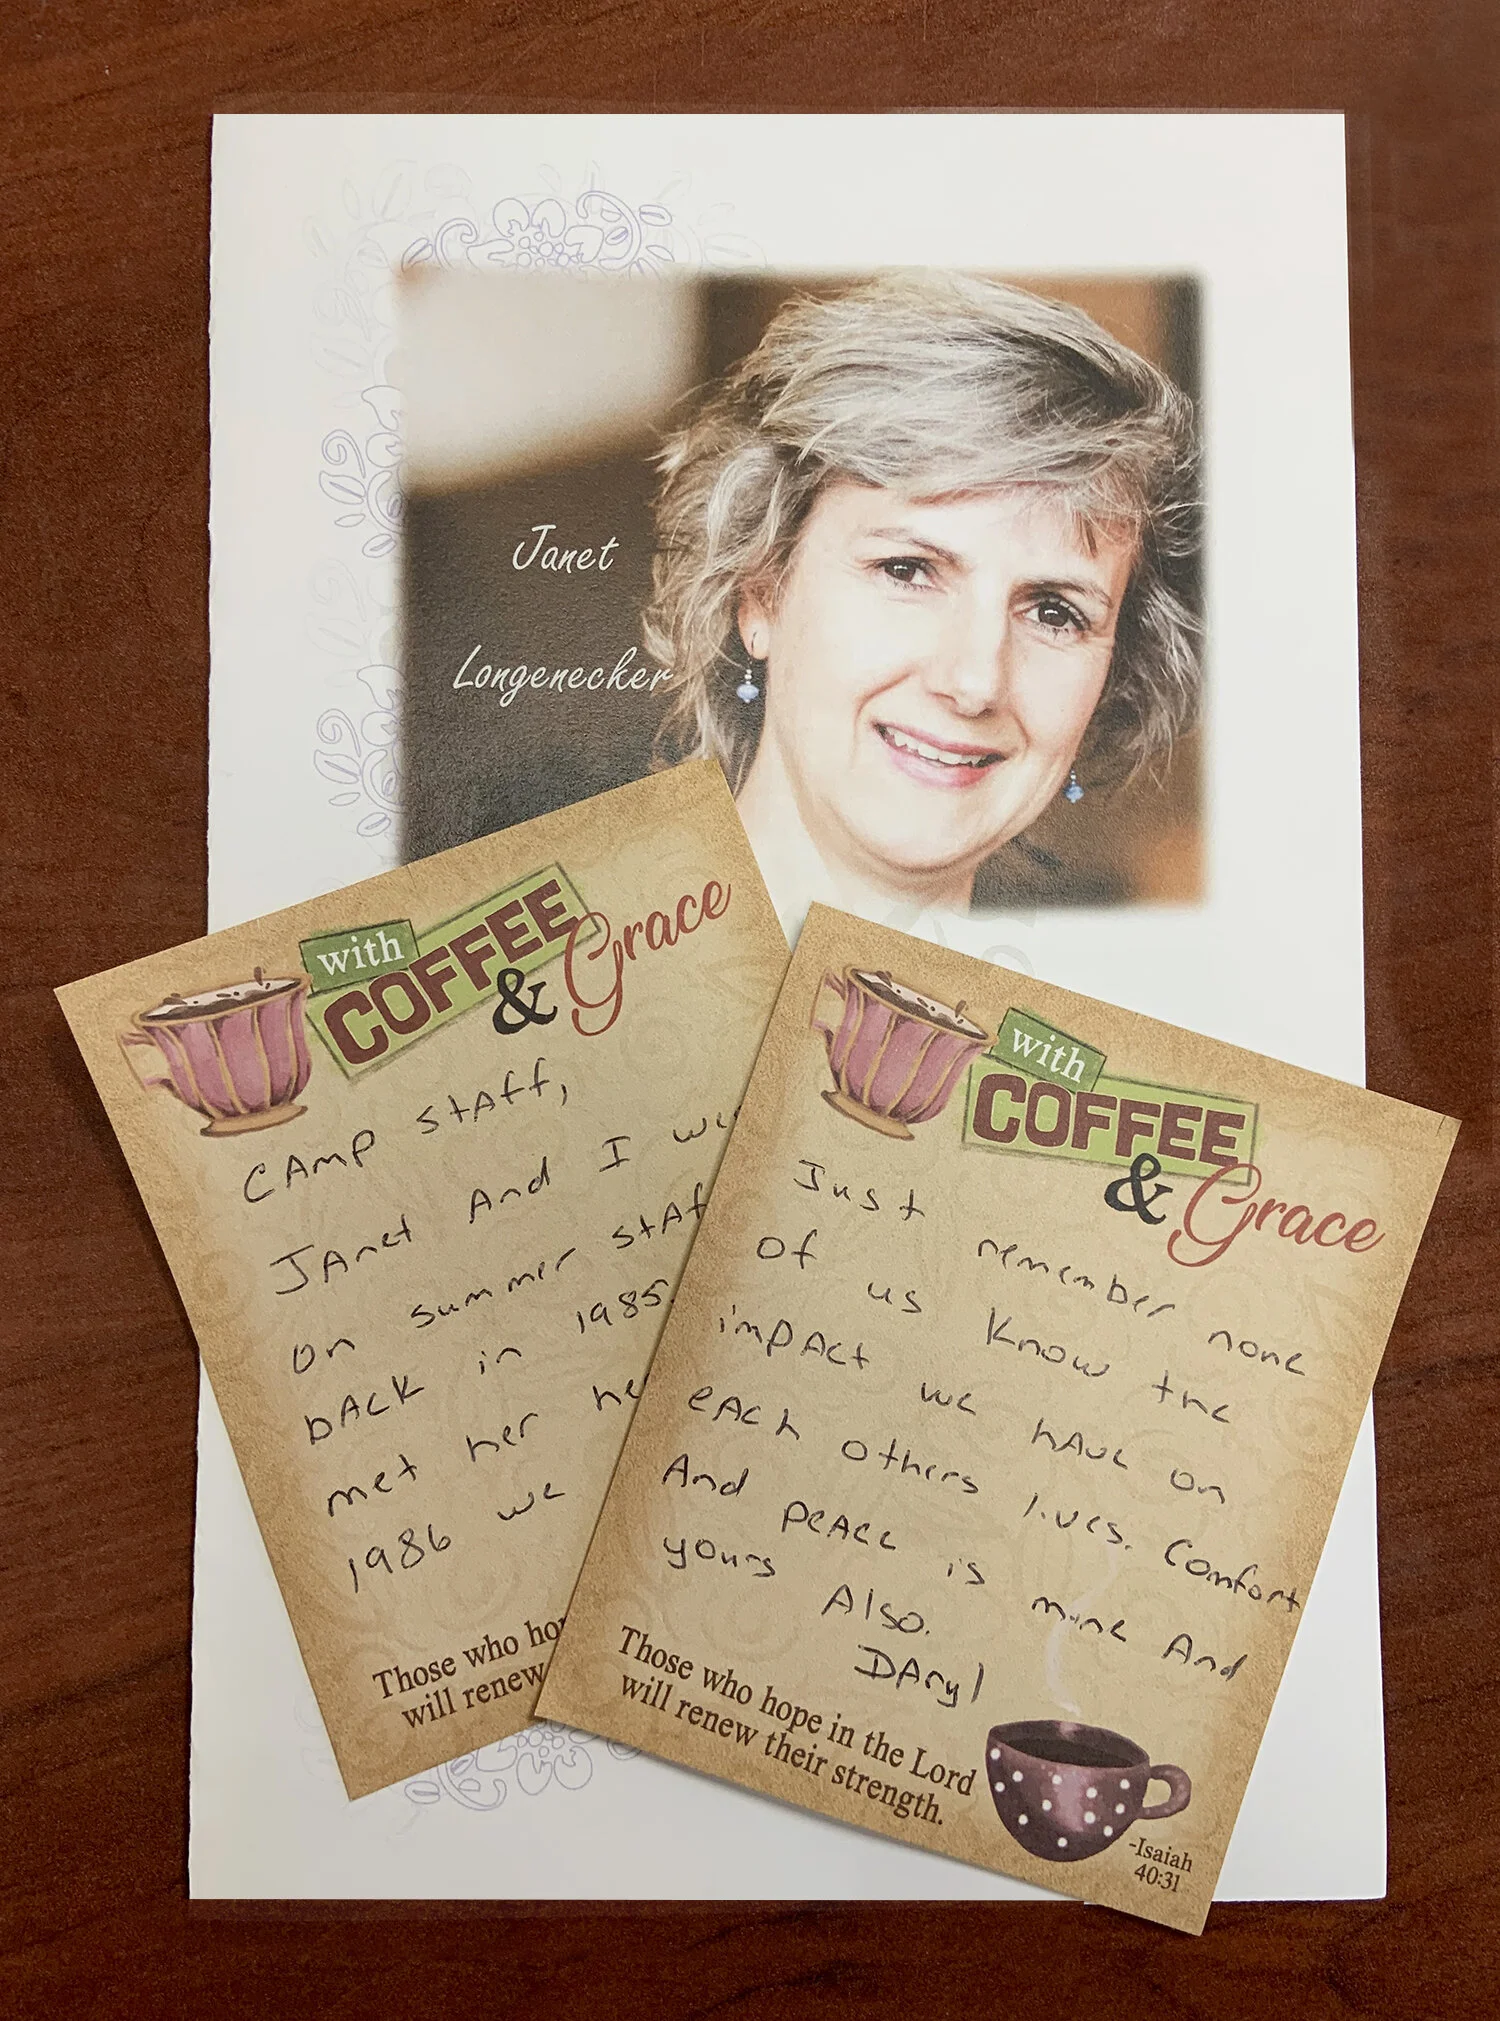 Janet
Longenecker
with
COFFEE
& Grace
CAmp stAff,
JAnet And I
on summer
bAck in 1985
met her
1986 we
Those who
will renew
with
COFFEE
& Grace
Just remember none
of us know the
impAct we hAve on
eAch others lives. Comfort
And peAce is mine And
yours Also.
DAryl
Those who hope in the Lord
will renew their strength.
-Isaiah
40:31